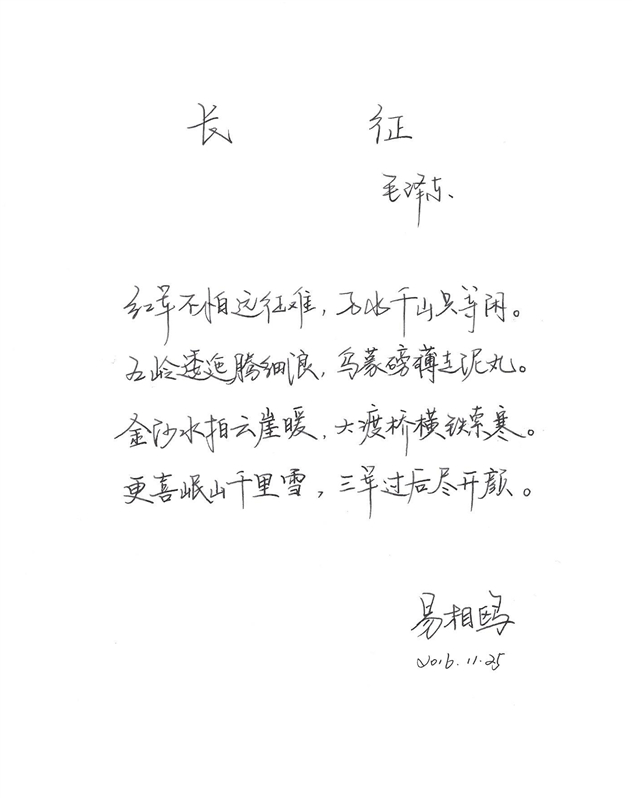 长 征
毛泽东
红军不怕远征难，万水千山只等闲。
五岭逶迤腾细浪，乌蒙磅礴走泥丸。
金沙水拍云崖暖，大渡桥横铁索寒。
更喜岷山千里雪，三军过后尽开颜。
易相鸥
2016.11.25